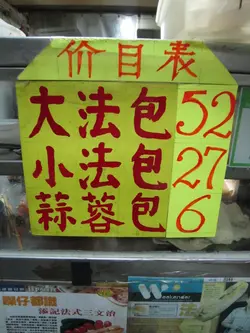 价目表
大法包 52
小法包 27
蒜蓉包 6
添記法式三文治